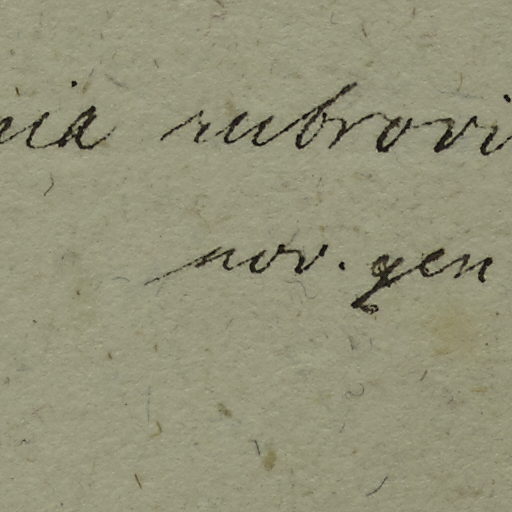 nia rubrovi
nov. gen